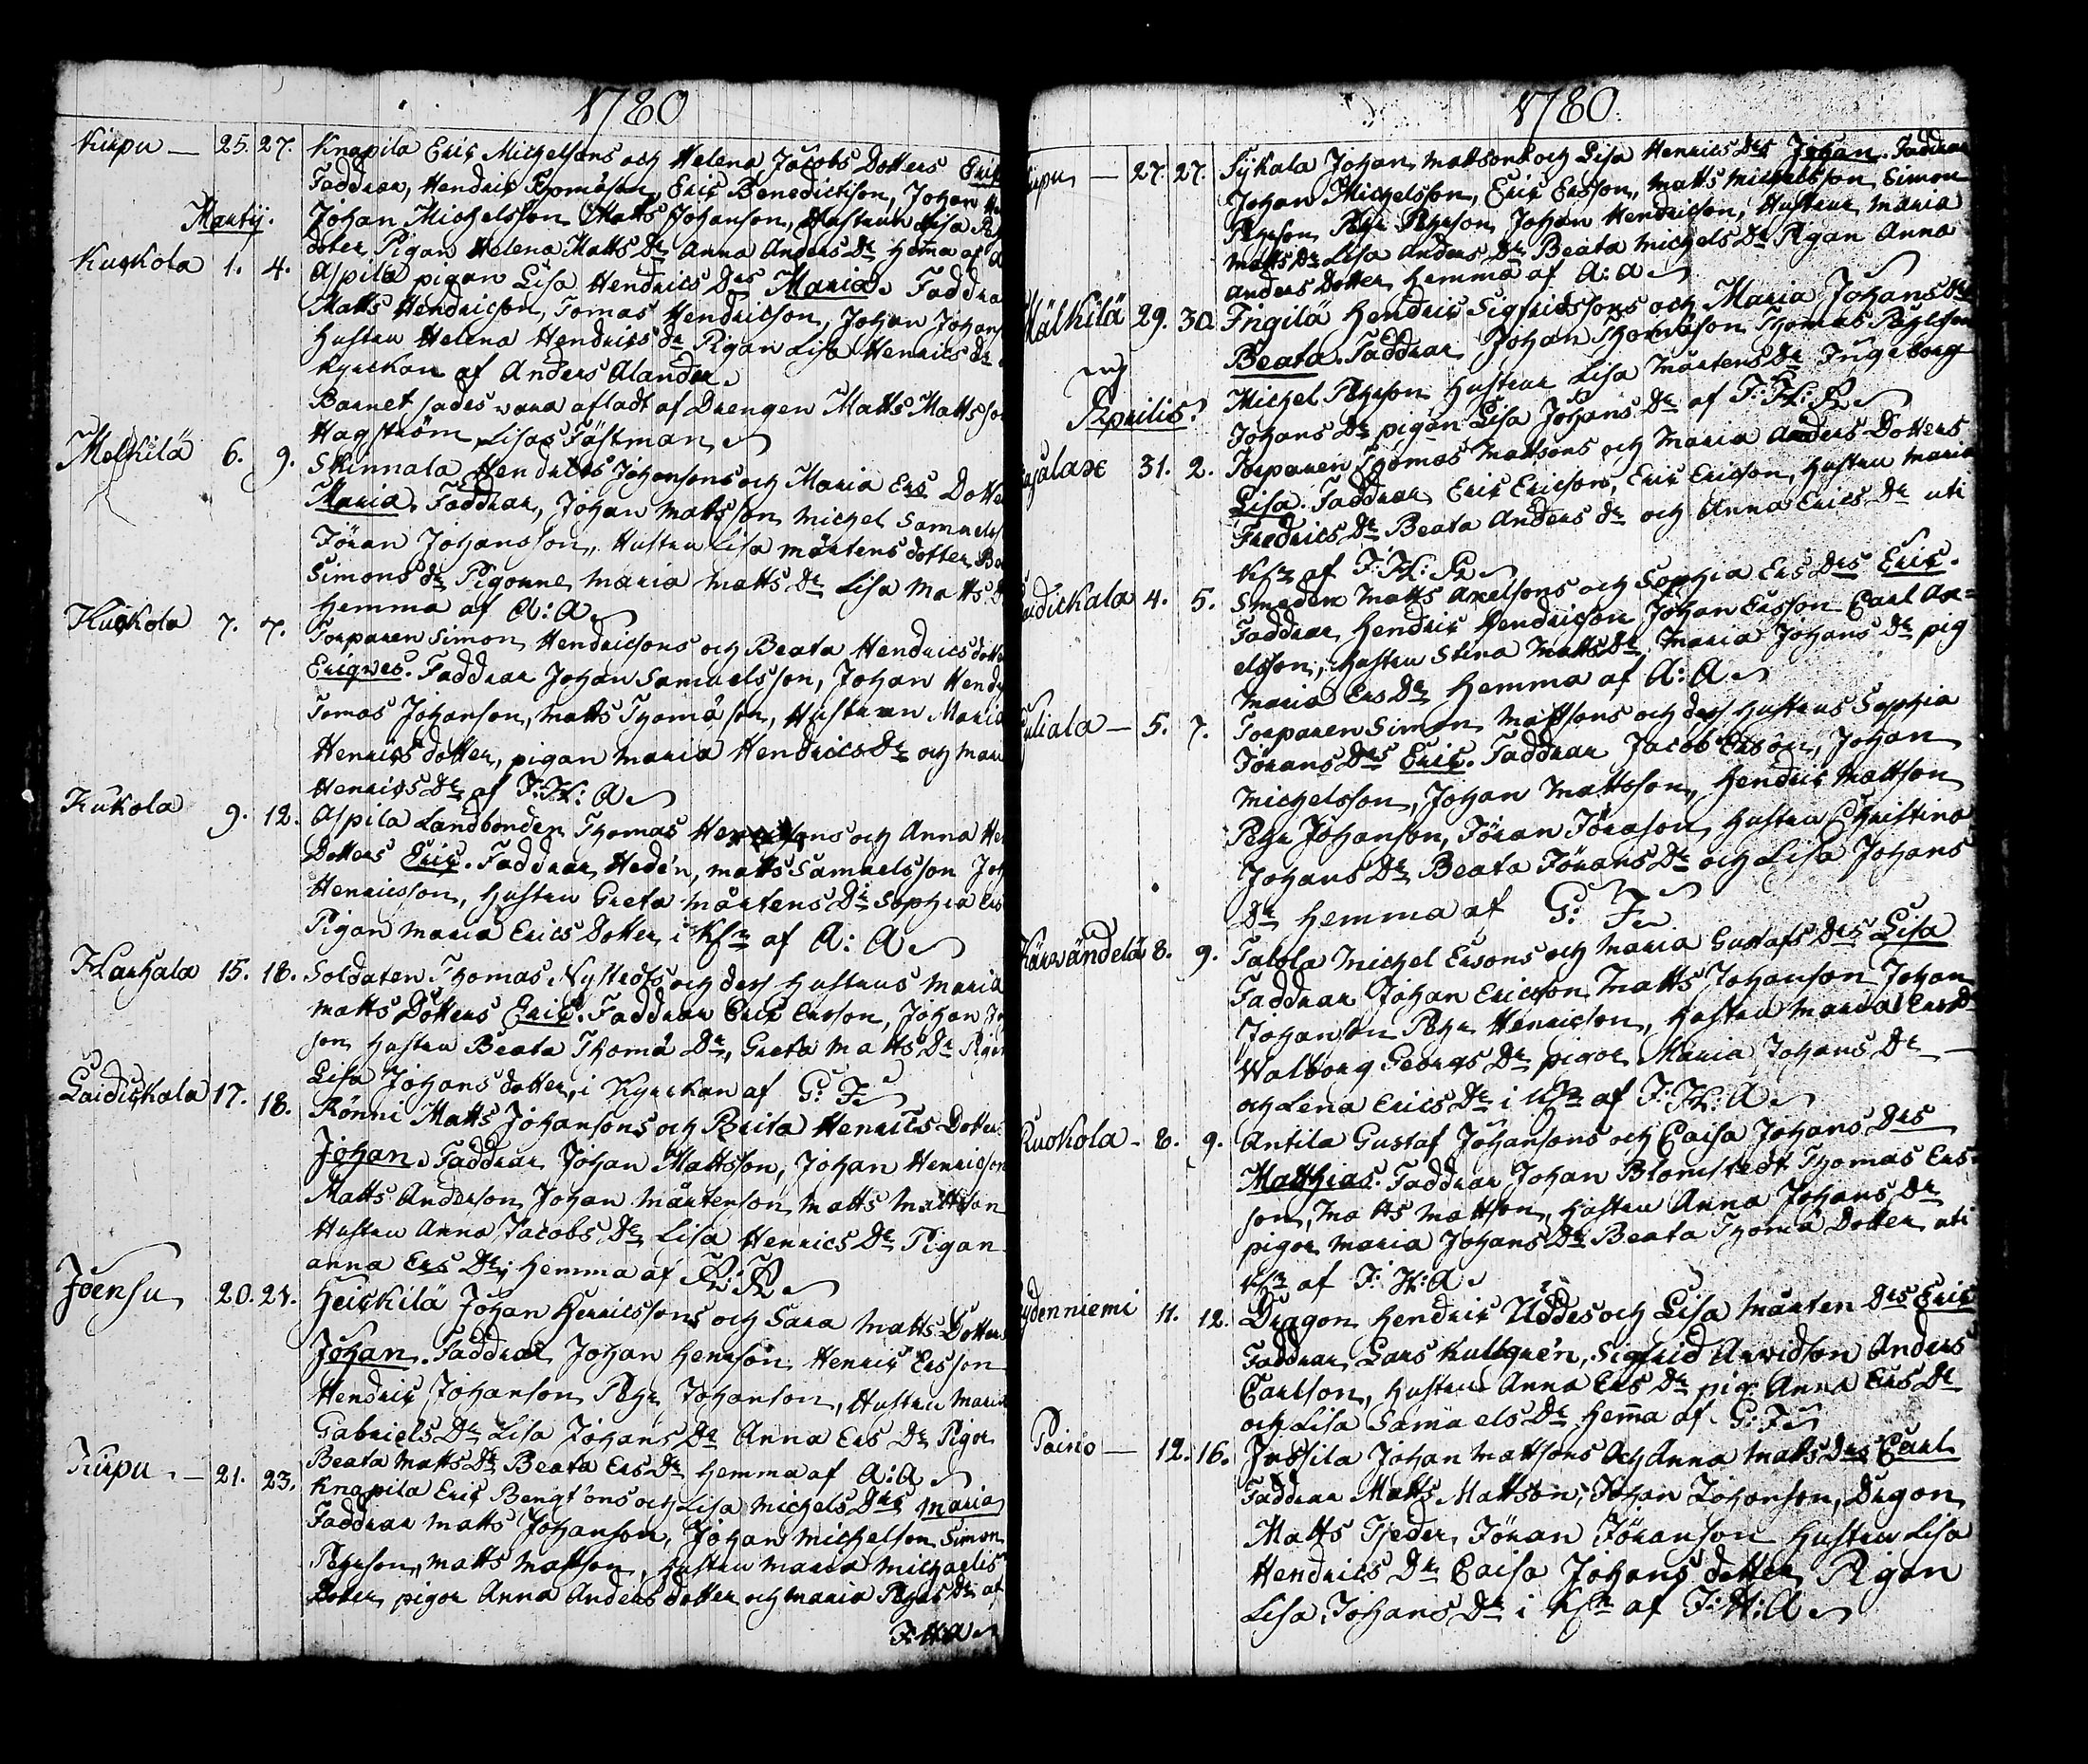 1780
Kirpu — 25. 27. Knapila Eric Michelsons och Helena Jacobs Dotters Eric
Faddrar, Hendric Thomason, Eric Benedictson, Johan
Johan Michelsson Matts Johanson, Hustrun Lisa
Martij.
doter Pigan Helena Matts Dr Anna Anders Dr Hema af A
Kuskola 1. 4. Aspila pigan Lisa Hendrics Drs Maria. Faddrar
Matts Hendricson, Tomas Hendricson, Johan Johans
Hustru Helena Hendrics dr Pigan Lisa Henrics dr
Kyrckan af Anders Alander.
Barnet sades vara afladt af Drengen Matts Mattsson
Hagström Lisas Fästman
Melkilä 6. 9. Skinnala Hendrics Johansons och Maria Ers Dotte
Maria. Faddrar, Johan Mattsson Michel Samuels
Jöran Johansson, Hustru Lisa Mårtens dotter
Simons dr Pigorne Maria Matts Dr Lisa Matts D
Hemma af A: A
Kuskola 7. 7. Torparen Simon Hendricsons och Beata Hendrics dott
Ericus. Faddrar Johan Samuelsson, Johan Hend
Tomas Johanson, Matts Thomason, Hustrun Maria
Henrics dotter, pigan Maria Hendrics Dr och Mar
Henrics Dr af J: H: A
Kukola 9. 12. Aspila Landbonden Thomas Henricsons och Anna He
Dotters Eric. Faddrar Hedén, Matts Samuelsson Joh
Henricsson, Hustru Greta Mårtens Dr Sophia Ers
Pigan Maria Erics Dotter i Kyr af A: A
Harhala 15. 18. Soldaten Thomas Nystedts och des Hustrus Maria
Matts Dotters Eric. Faddrar Eric Ersson, Johan
son Hustru Beata Thoma Dr, Greta Matts Dr Pigan
Lisa Johans dotter, i Kyrckan af G: F
Laidickala 17. 18. Rönni Matts Johansons och Brita Henrics Dotters
Johan. Faddrar Johan Mattsson, Johan Henricson
Matts Anderson Johan Mårtenson Matts Mattson
Hustru Anna Jacobs Dr Lisa Henrics Dr Pigan
anna Ers Dr, Hemma af
Joensu 20. 21. Heickilä Johan Henricssons och Sara Matts Dotters
Johan. Faddrar Johan Henrson Henric Ersson
Hendric Johanson Pehr Johanson, Hustru Maria
Gabriels Dr Lisa Johans Dr Anna Ers Dr Pigor
Beata Matts Dr Beata Ers Dr Hemma af A: A
Kirpu — 21. 23. Knapila Eric Bengtsons och Lisa Michels Drs Maria
Faddrar Matts Johanson, Johan Michelson Simon
Pehrson, Matts Mattson, Hustru Maria Michaelis
Doter, pigor Anna Anders dotter och Maria Pehrs Dr af
J: H: A
1780.
irpu — 27. 27. Sykala Johan Mattsons och Lisa Henrics Drs Johan. Faddrar
Johan Michelsson, Eric Ersson, Matts Michelsson Simon
Pehrson Pehr Pehrson Johan Hendricson, Hustrur Maria
Matts Dr Lisa Anders Dr Beata Michels Dr Pigan Anna
Anders Dotter Hemma af A: A
Mälkilä 29. 30. Ingilä Hendric Sigfridssons och Maria Johans Drs
Beata. Faddrar Johan Thomason Thomas
Michel Pehrson Hustrur Lisa Mårtens Dr Ingeborg
Aprilis.
Johans Dr pigan Lisa Johans Dr af
salax 31. 2. Torparen Thomas Mattsons och Maria Anders Dotters
Lisa. Faddrar Eric Ericson, Eric Ericson, Hustru Maria
Fredrics Dr Beata Anders dr och Anna Erics Dr uti
Kyr af
aidickala 4. 5. Smeden Matts Axelsons och Sophia Ers Drs Eric.
Faddrar Hendric Hendricson Johan Ersson Carl Ax=
elsson, Hustru Stina Matts Dr Maria Johans Dr pig
Maria Ers Dr Hemma af A: A
uliala — 5. 7. Torparen Simon Mattsons och des Hustrus Sophia
Jörans Drs Eric. Faddrar Jacob Erson, Johan
Michelsson, Johan Mattsson, Hendric Mattson
Pehr Johanson, Jöran Jörason, Hustru Christina
Johans Dr Beata Jörans Dr och Lisa Johans
Dr Hemma af G: F
Kärsändelä 8. 9. Talola Michel Ersons och Maria Gustafs Drs Lisa
Faddrar Johan Ericson Matts Johanson Johan
Johanson Pehr Henricson, Hustru Maria Ers D
Walborg Georgs Dr pigor Maria Johans Dr
och Lena Erics Dr i Kyr af J: H: A
Ruokola - 8. 9. Antila Gustaf Johansons och Caisa Johans Drs
Matthias. Faddrar Johan Blomstedt Thomas Ers=
son, Matts Mattson, Hustru Anna Johans Dr
pigor Maria Johans Dr Beata Thoma Dotter uti
Kyr af J: H: A
ydenniemi 11. 12. Dragon Hendric Uddes och Lisa Mårten Drs Eric
Faddrar Lars Kullgren, Sigfrid Arvidson Anders
Carlson, Hustru Anna Ers Dr pig. Anna Ers Dr
och Lisa Samuels Dr Hemma af G: F
Paino — 12. 16. Jussila Johan Mattsons och Anna Matts Drs Carl
Faddrar Matts Mattson, Johan Johanson, Drgon
Matts Tjeder, Jöran Jöranson Hustru Lisa
Hendrics Dr Caisa Johans dotter Pigan
Lisa Johans Dr i Kyr af J: H: A